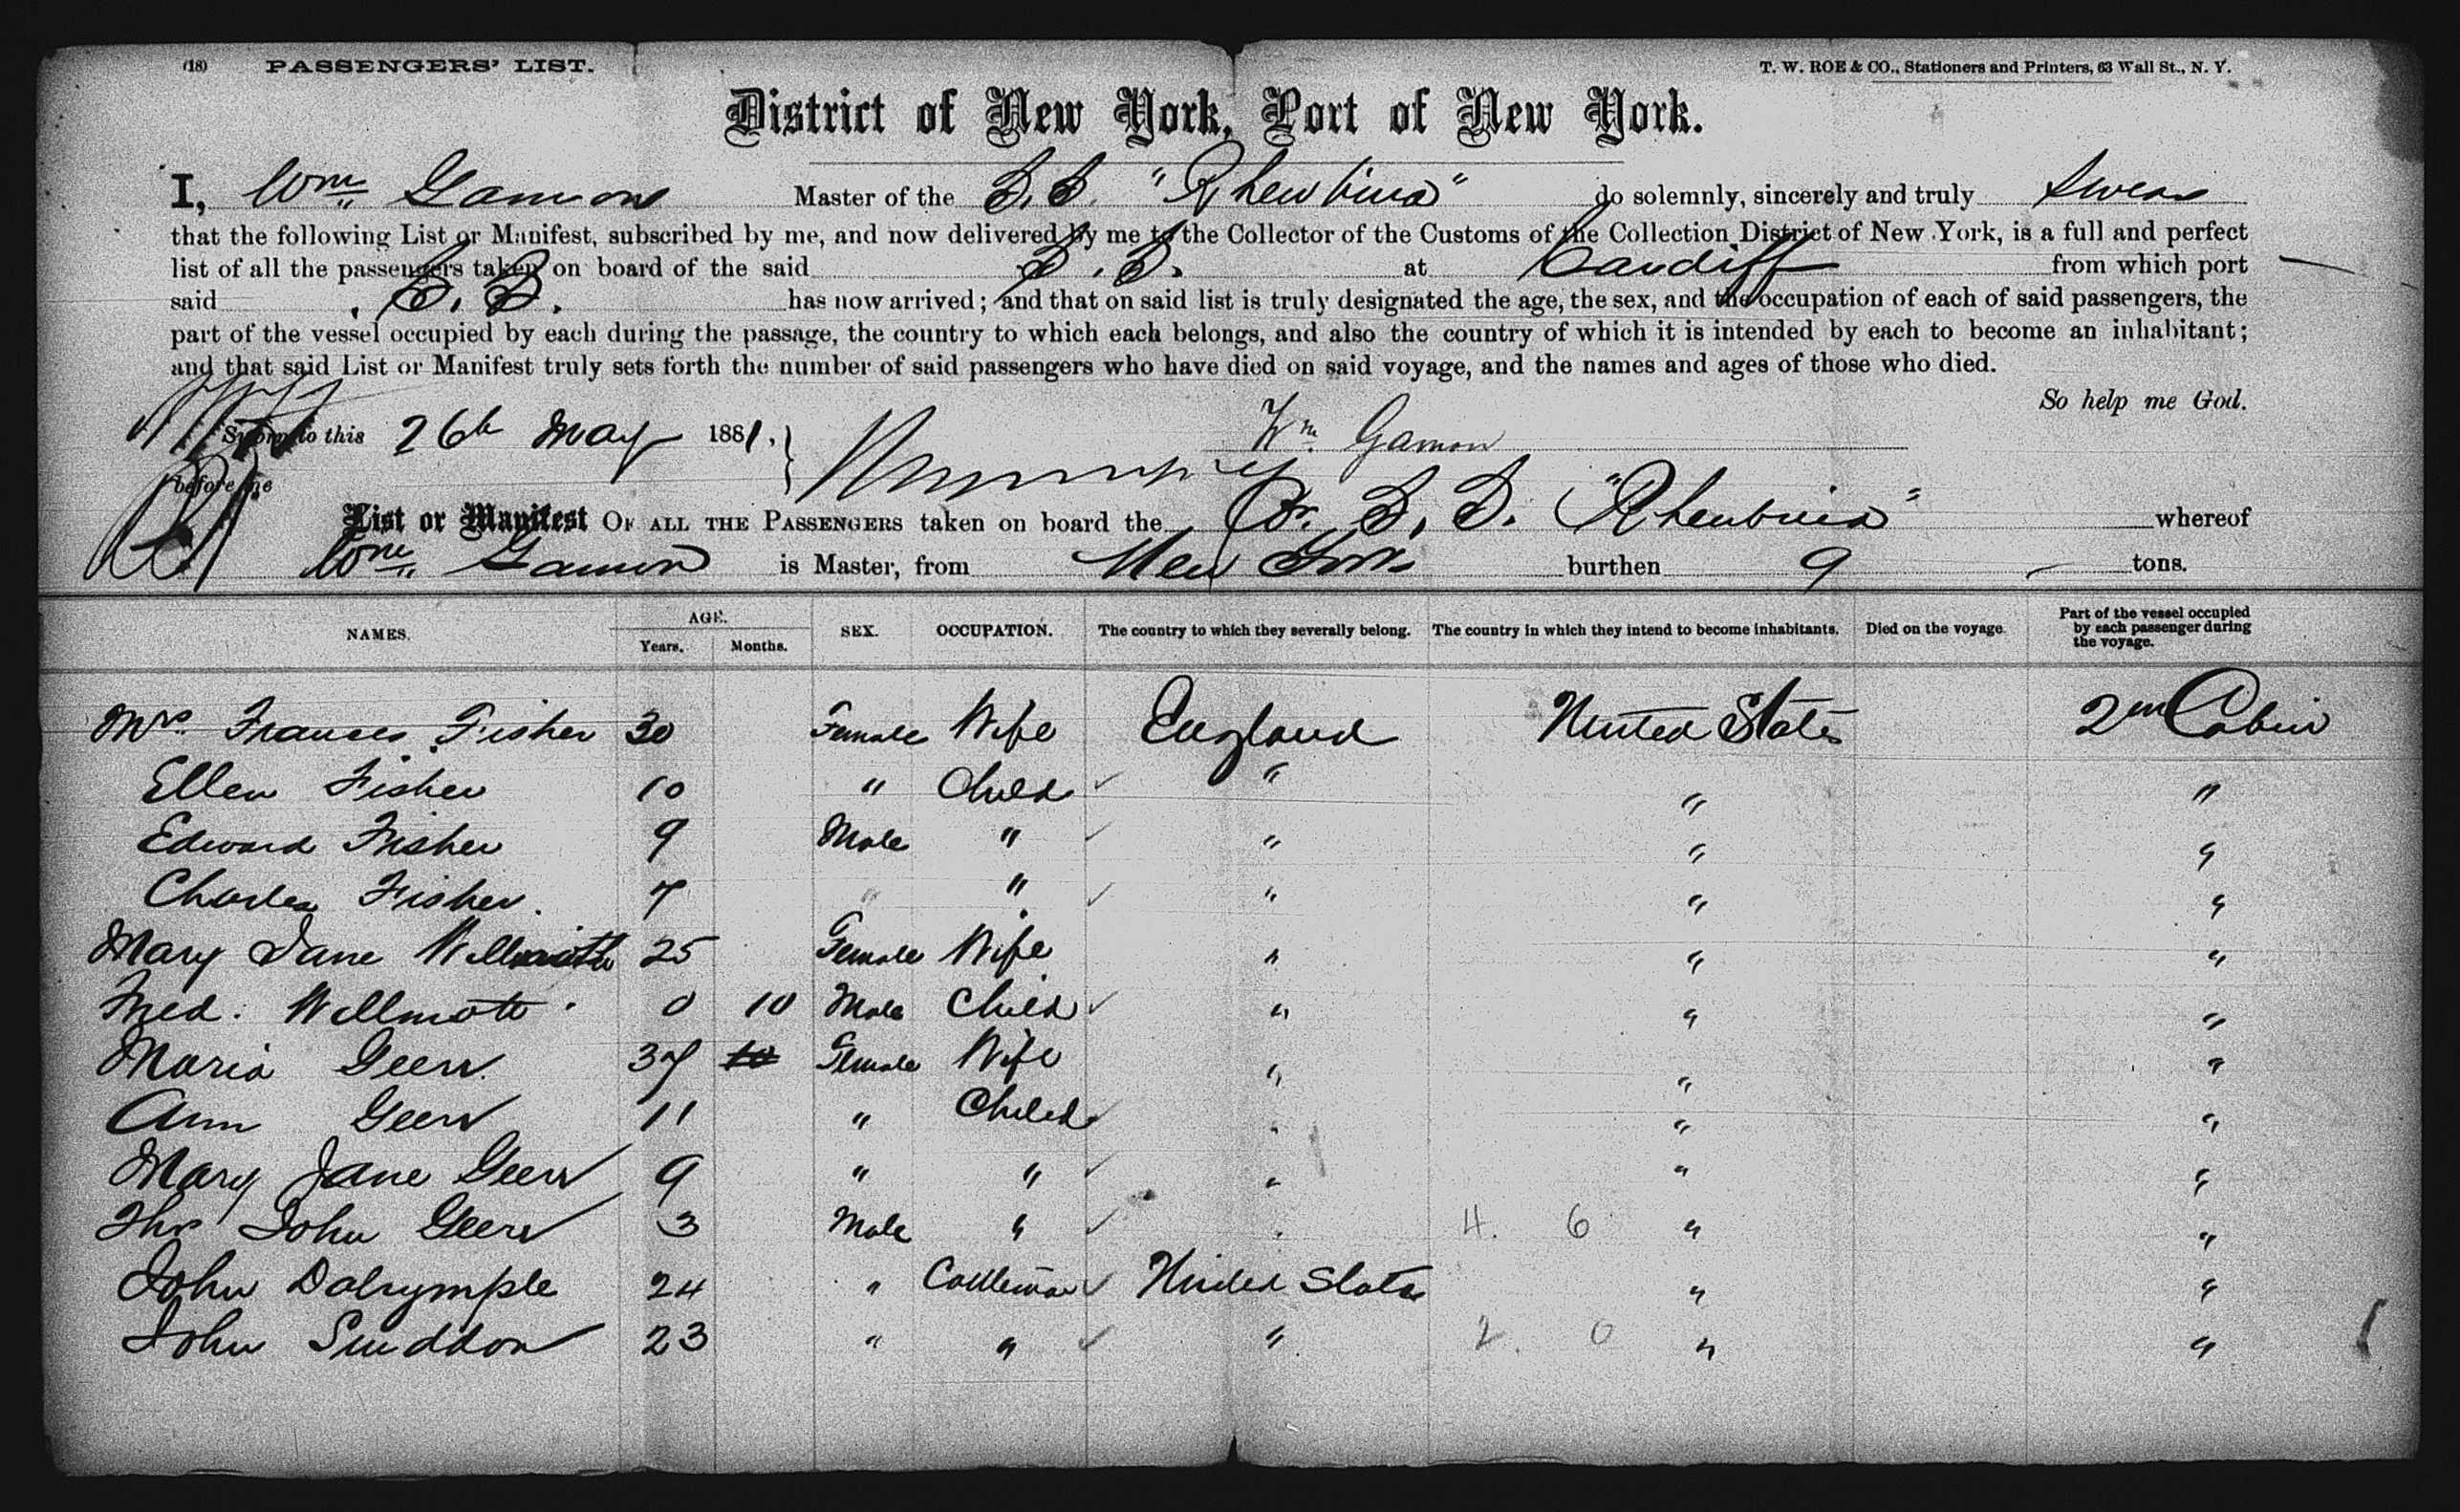 (18) PASSENGERS' LIST. T. W. ROE & CO., Stationers and Printers, 63 Wall St., N. Y.
District of New York, Port of New York.
I, Wm Gamon Master of the S.S. "Rhewbina" do solemnly, sincerely and truly swear
that the following List or Manifest, subscribed by me, and now delivered by me to the Collector of the Customs of the Collection District of New York, is a full and perfect
list of all the passengers taken on board of the said S.S. at Cardiff from which port
said S.S. has now arrived; and that on said list is truly designated the age, the sex, and the occupation of each of said passengers, the
part of the vessel occupied by each during the passage, the country to which each belongs, and also the country of which it is intended by each to become an inhabitant;
and that said List or Manifest truly sets forth the number of said passengers who have died on said voyage, and the names and ages of those who died.
So help me God.
Sworn to this 26th May 1881, Wm Gamon
before me
List or Manifest OF ALL THE PASSENGERS taken on board the Br. S. S. "Rhewbina" whereof
Wm Gamon is Master, from New York burthen 9 tons.
NAMES. AGE. Years. Months. SEX. OCCUPATION. The country to which they severally belong. The country in which they intend to become inhabitants. Died on the voyage. Part of the vessel occupied by each passenger during the voyage.
Mrs. Frances Fisher 30 Female Wife England United States 2nd Cabin
Ellen Fisher 10 " Child " " "
Edward Fisher 9 Male " " " "
Charles Fisher. 7 " " " " "
Mary Jane Willmott 25 Female Wife " " "
Fred. Willmott 0 10 Male Child " " "
Maria Geer 37 10 Female Wife " " "
Ann Geer 11 " Child " " "
Mary Jane Geer 9 " " " " "
Thos John Geer 3 Male " " 4. 6 " "
John Dalrymple 24 " Cattleman United States " "
John Sneddon 23 " " " 2. 0 " "